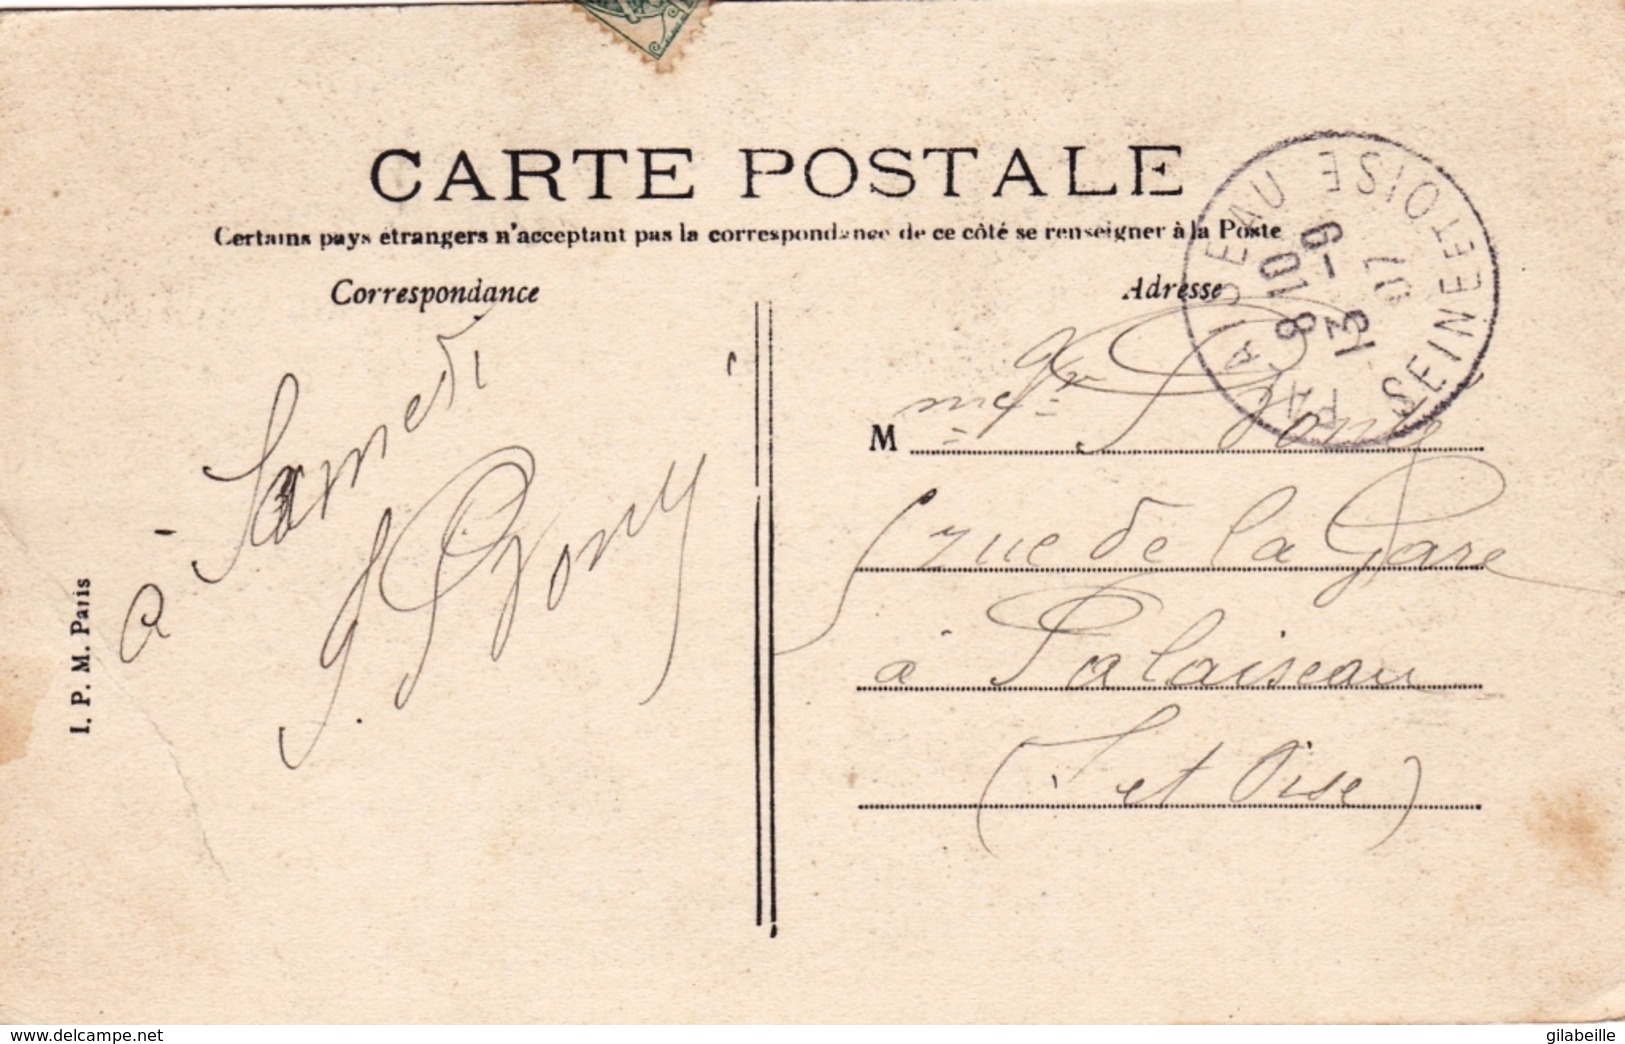 CARTE POSTALE
Certains pays étrangers n'acceptant pas la correspondance de ce côté se renseigner à la Poste
Correspondance
Adresse
à Samedi
M
rue de la Gare
à Palaiseau
(S et Oise)
PALAISEAU SEINE ET OISE
8 10
13 - 9
07
I. P. M. Paris
www.delcampe.net
gilabeille